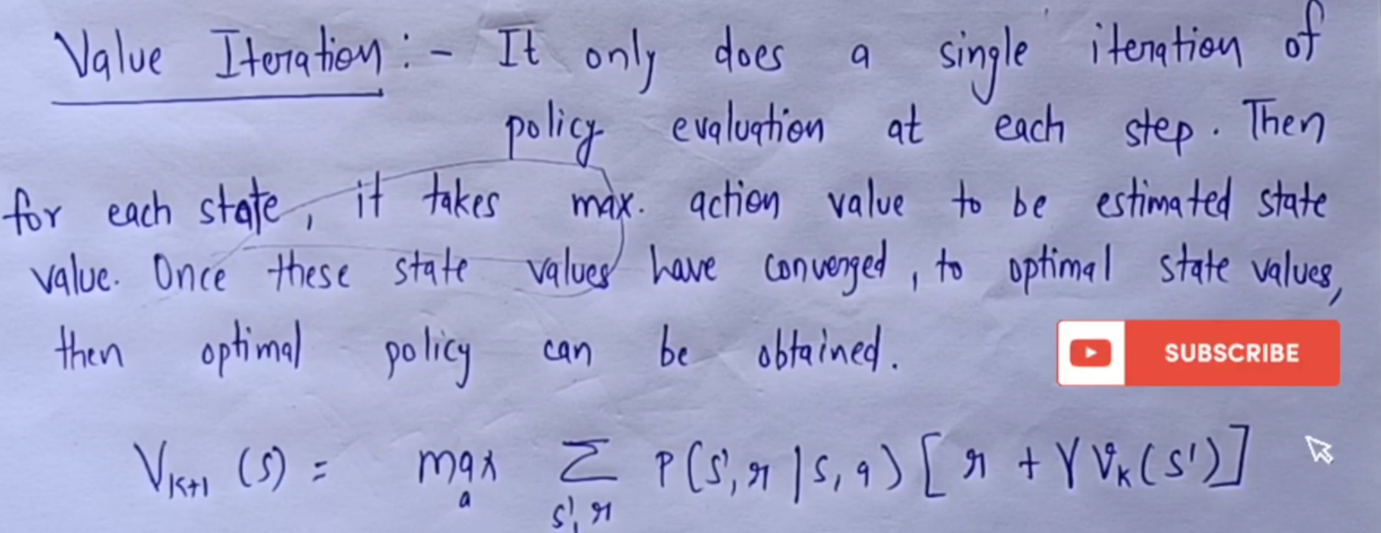 Value Iteration :- It only does a single iteration of
policy evaluation at each step. Then
for each state, it takes max. action value to be estimated state
value. Once these state values have converged, to optimal state values,
then optimal policy can be obtained.
SUBSCRIBE
V_{k+1} (s) = max_a Σ_{s', r} P(s', r | s, a) [r + γ V_k (s')]